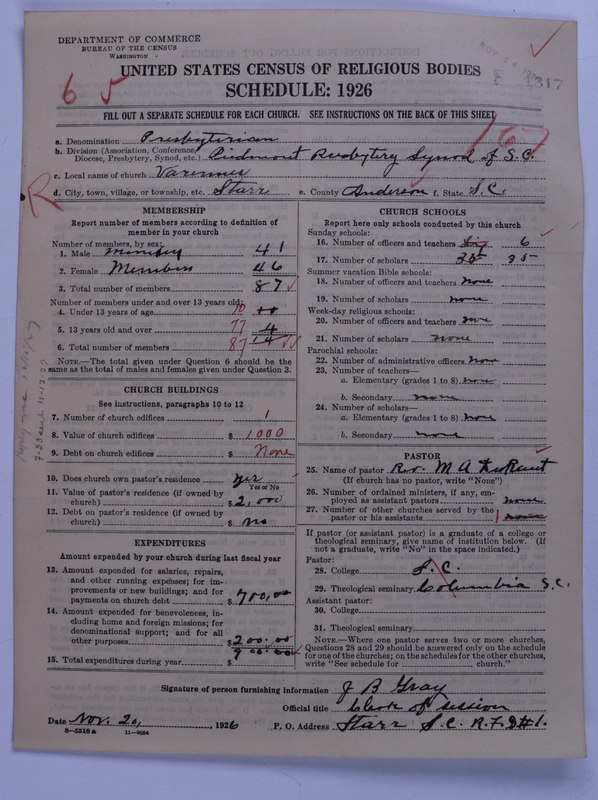 DEPARTMENT OF COMMERCE
BUREAU OF THE CENSUS
WASHINGTON
UNITED STATES CENSUS OF RELIGIOUS BODIES
SCHEDULE: 1926
6 5
1317
FILL OUT A SEPARATE SCHEDULE FOR EACH CHURCH. SEE INSTRUCTIONS ON THE BACK OF THIS SHEET
a. Denomination Presbyterian
b. Division (Association, Conference, Diocese, Presbytery, Synod, etc.) Piedmont Presbytery Synod of S.C.
c. Local name of church Varennes
d. City, town, village, or township, etc. Starr e. County Anderson f. State S.C.
R
MEMBERSHIP
Report number of members according to definition of
member in your church
Number of members, by sex:
1. Male members 41
2. Female Members 46
3. Total number of members 87
Number of members under and over 13 years old:
4. Under 13 years of age 10 10
5. 13 years old and over 77 4
6. Total number of members 87 14
NOTE.—The total given under Question 6 should be the
same as the total of males and females given under Question 3.
CHURCH BUILDINGS
See instructions, paragraphs 10 to 12
7. Number of church edifices 1
8. Value of church edifices $ 1000
9. Debt on church edifices $ None
10. Does church own pastor's residence yes
Yes or No
11. Value of pastor's residence (if owned by
church) $ 2,000
12. Debt on pastor's residence (if owned by
church) $ no
EXPENDITURES
Amount expended by your church during last fiscal year
13. Amount expended for salaries, repairs,
and other running expenses; for im-
provements or new buildings; and for
payments on church debt $ 700,00
14. Amount expended for benevolences, in-
cluding home and foreign missions; for
denominational support; and for all
other purposes $ 200.00
15. Total expenditures during year $ 900.00
CHURCH SCHOOLS
Report here only schools conducted by this church
Sunday schools:
16. Number of officers and teachers six 6
17. Number of scholars 35 35
Summer vacation Bible schools:
18. Number of officers and teachers None
19. Number of scholars none
Week-day religious schools:
20. Number of officers and teachers none
21. Number of scholars none
Parochial schools:
22. Number of administrative officers none
23. Number of teachers—
a. Elementary (grades 1 to 8) none
b. Secondary none
24. Number of scholars—
a. Elementary (grades 1 to 8) none
b. Secondary none
PASTOR
25. Name of pastor Rev. M A
(If church has no pastor, write "None")
26. Number of ordained ministers, if any, em-
ployed as assistant pastors none
27. Number of other churches served by the
pastor or his assistants 1 none
If pastor (or assistant pastor) is a graduate of a college or
theological seminary, give name of institution below. (If
not a graduate, write "No" in the space indicated.)
Pastor:
28. College S.C.
29. Theological seminary Columbia S.C.
Assistant pastor:
30. College
31. Theological seminary
NOTE.—Where one pastor serves two or more churches,
Questions 28 and 29 should be answered only on the schedule
for one of the churches; on the schedules for the other churches,
write "See schedule for church."
Signature of person furnishing information J B Gray
Official title Clerk of session
Date Nov. 20, , 1926 P. O. Address Starr S.C. R.F.D #1.
8—5518a 11—9034